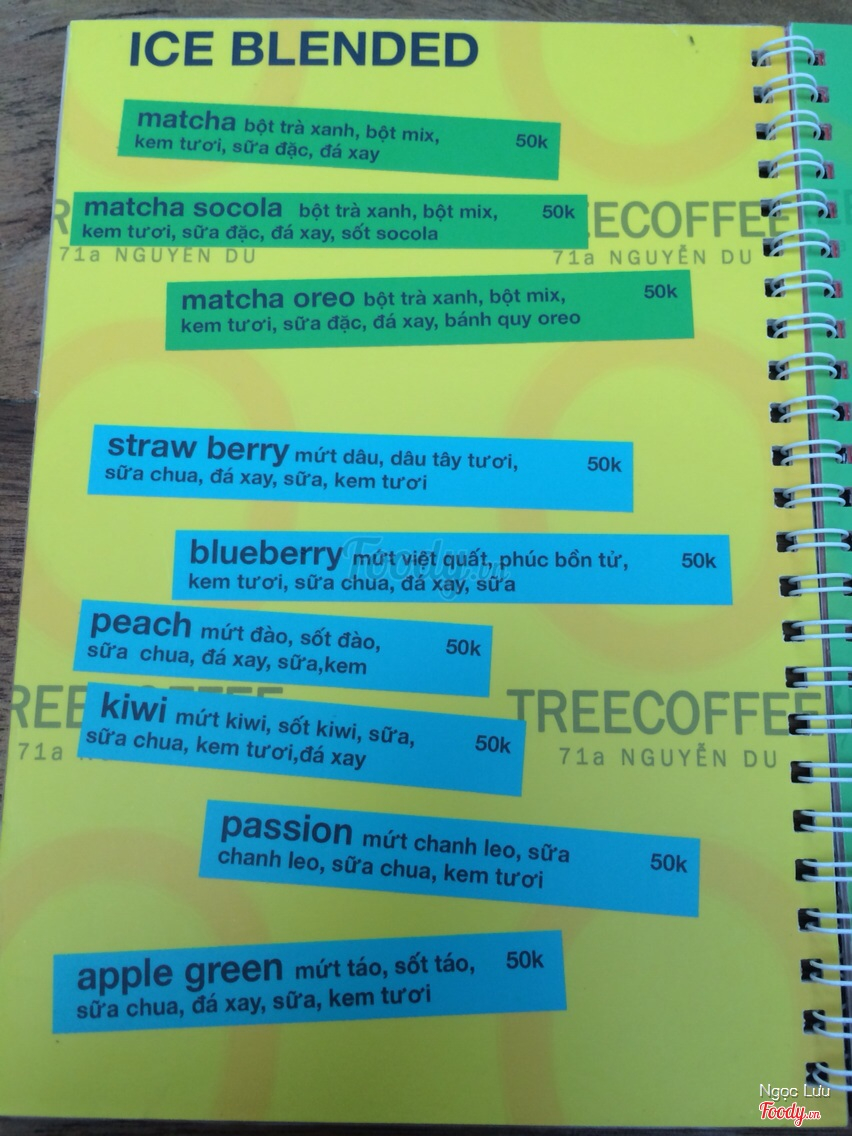 ICE BLENDED
matcha bột trà xanh, bột mix, 50k
kem tươi, sữa đặc, đá xay
matcha socola bột trà xanh, bột mix, 50k
kem tươi, sữa đặc, đá xay, sốt socola
REECOFFEE
71a NGUYỄN DU
71a NGUYỄN DU
matcha oreo bột trà xanh, bột mix, 50k
kem tươi, sữa đặc, đá xay, bánh quy oreo
straw berry mứt dâu, dâu tây tươi, 50k
sữa chua, đá xay, sữa, kem tươi
blueberry mứt việt quất, phúc bồn tử, 50k
kem tươi, sữa chua, đá xay, sữa
Foody.vn
peach mứt đào, sốt đào, 50k
sữa chua, đá xay, sữa,kem
kiwi mứt kiwi, sốt kiwi, sữa, 50k
sữa chua, kem tươi,đá xay
TREECOFFEE
71a NGUYỄN DU
71a
passion mứt chanh leo, sữa 50k
chanh leo, sữa chua, kem tươi
apple green mứt táo, sốt táo, 50k
sữa chua, đá xay, sữa, kem tươi
Ngọc Lưu
Foody.vn